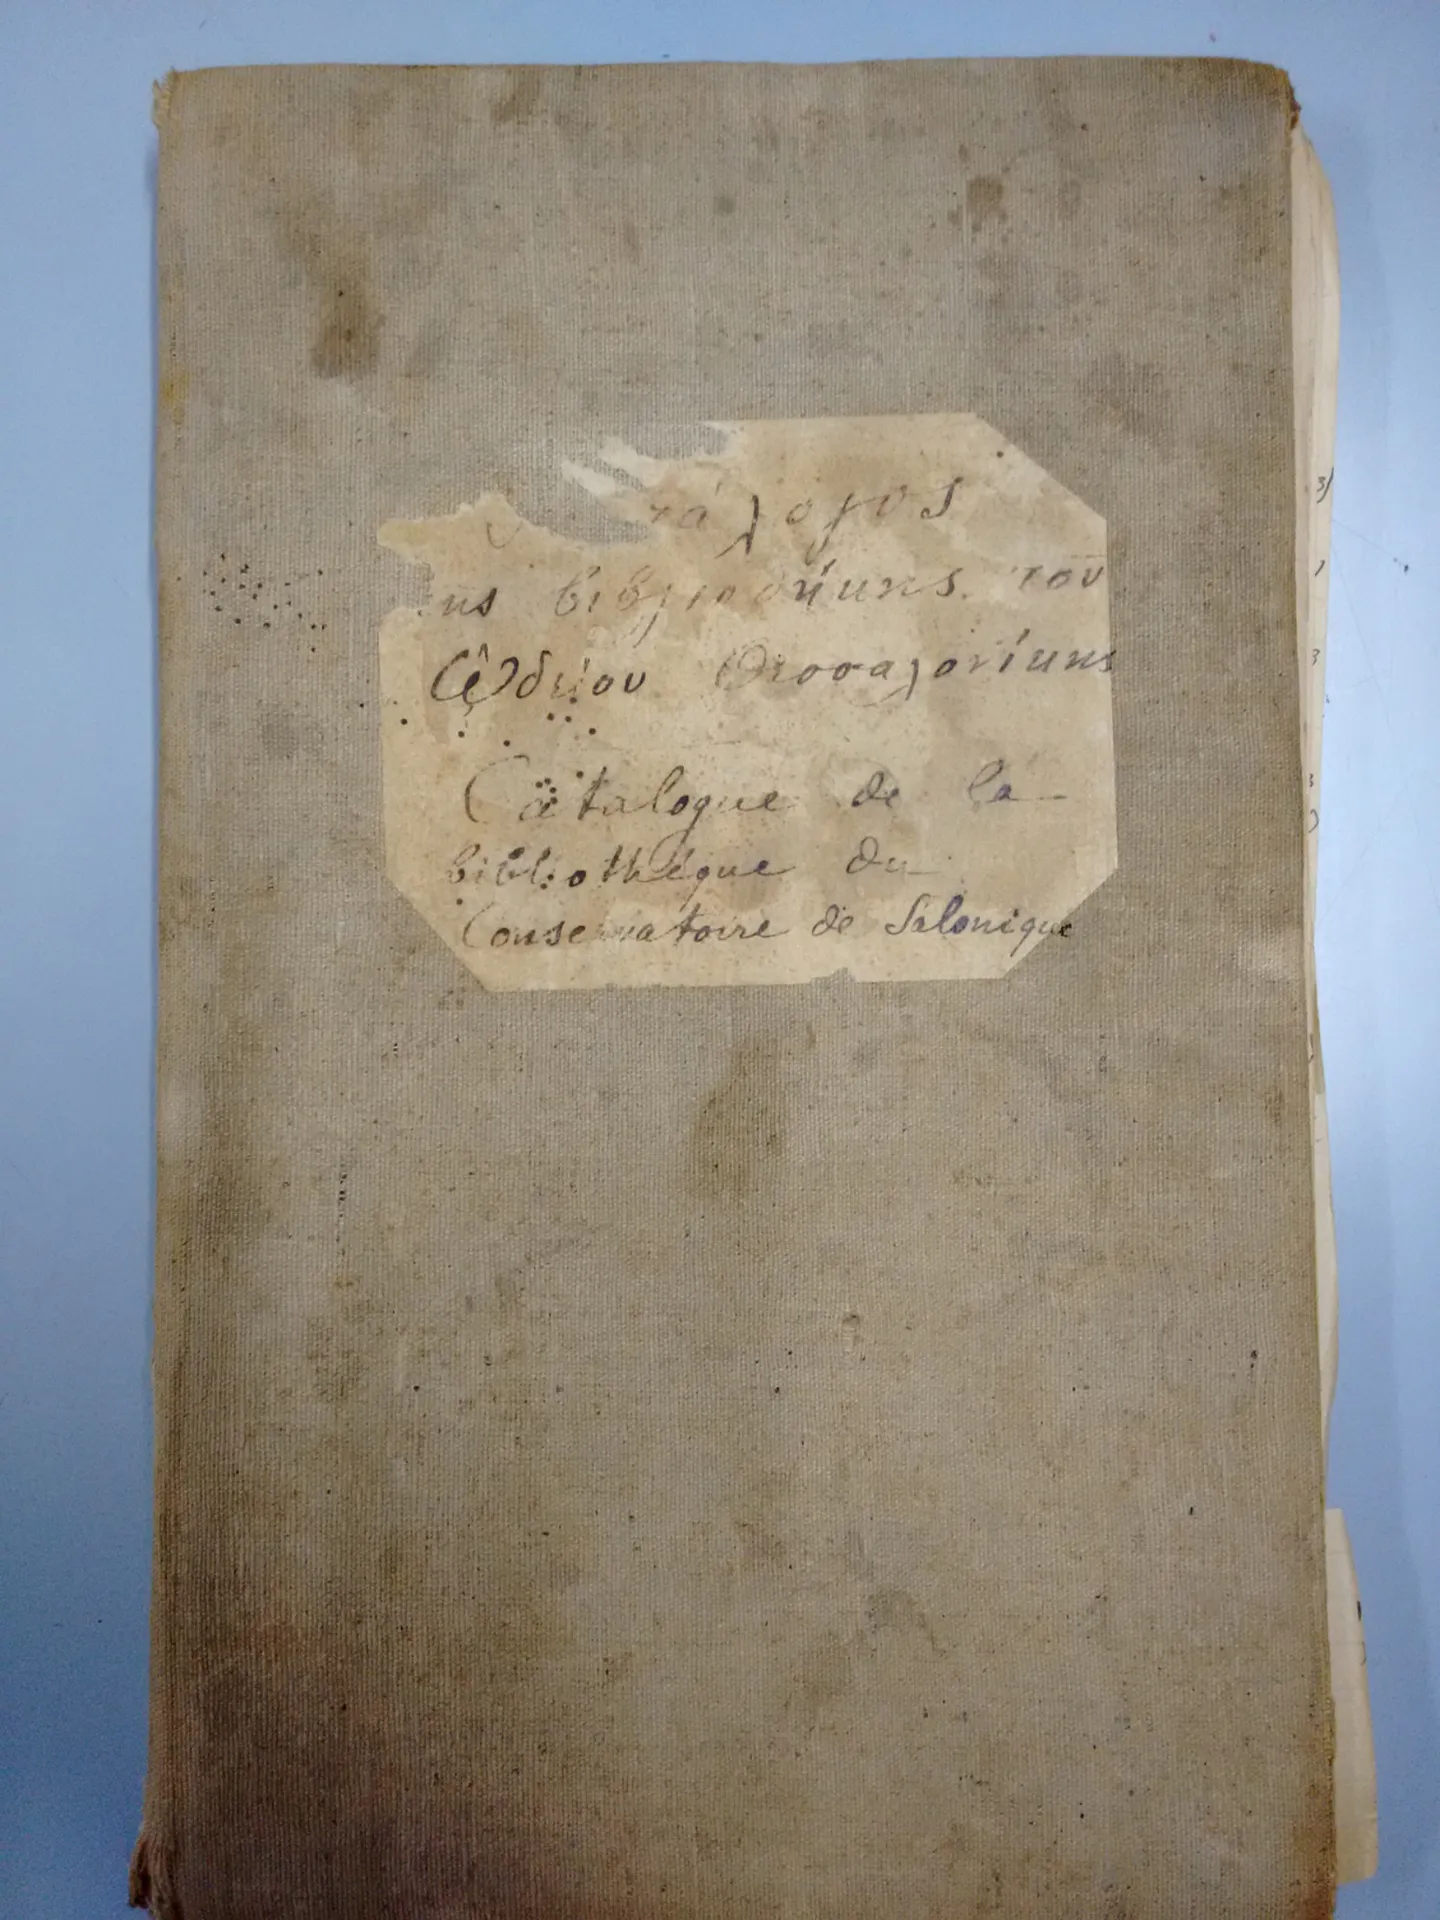 τάλογος
ης βιβλιοθήκης του
Ὠδείου Θεσσαλονίκης
Catalogue de la
bibliothéque du
Conservatoire de Salonique